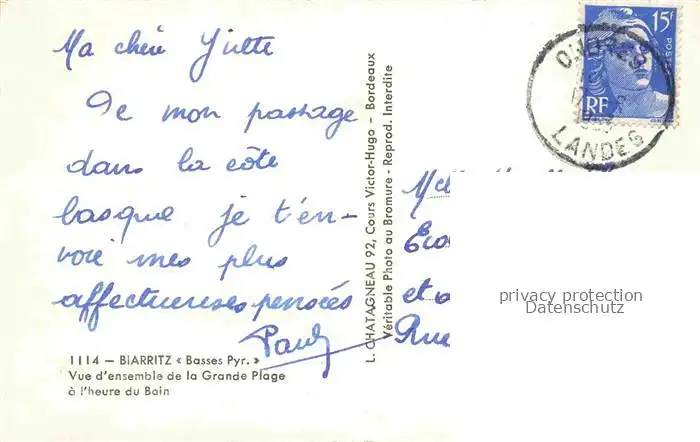 Ma chère Yvette
De mon passage
dans la côte
basque je t'en-
voie mes plus
affectueuses pensées
Paul
1114 — BIARRITZ « Basses Pyr. »
Vue d'ensemble de la Grande Plage
à l'heure du Bain
L. CHATAGNEAU 92, Cours Victor-Hugo - Bordeaux
Véritable Photo au Bromure - Reprod. Interdite
15F
POSTES
RF
ONDRES
LANDES
Rue
privacy protection
Datenschutz